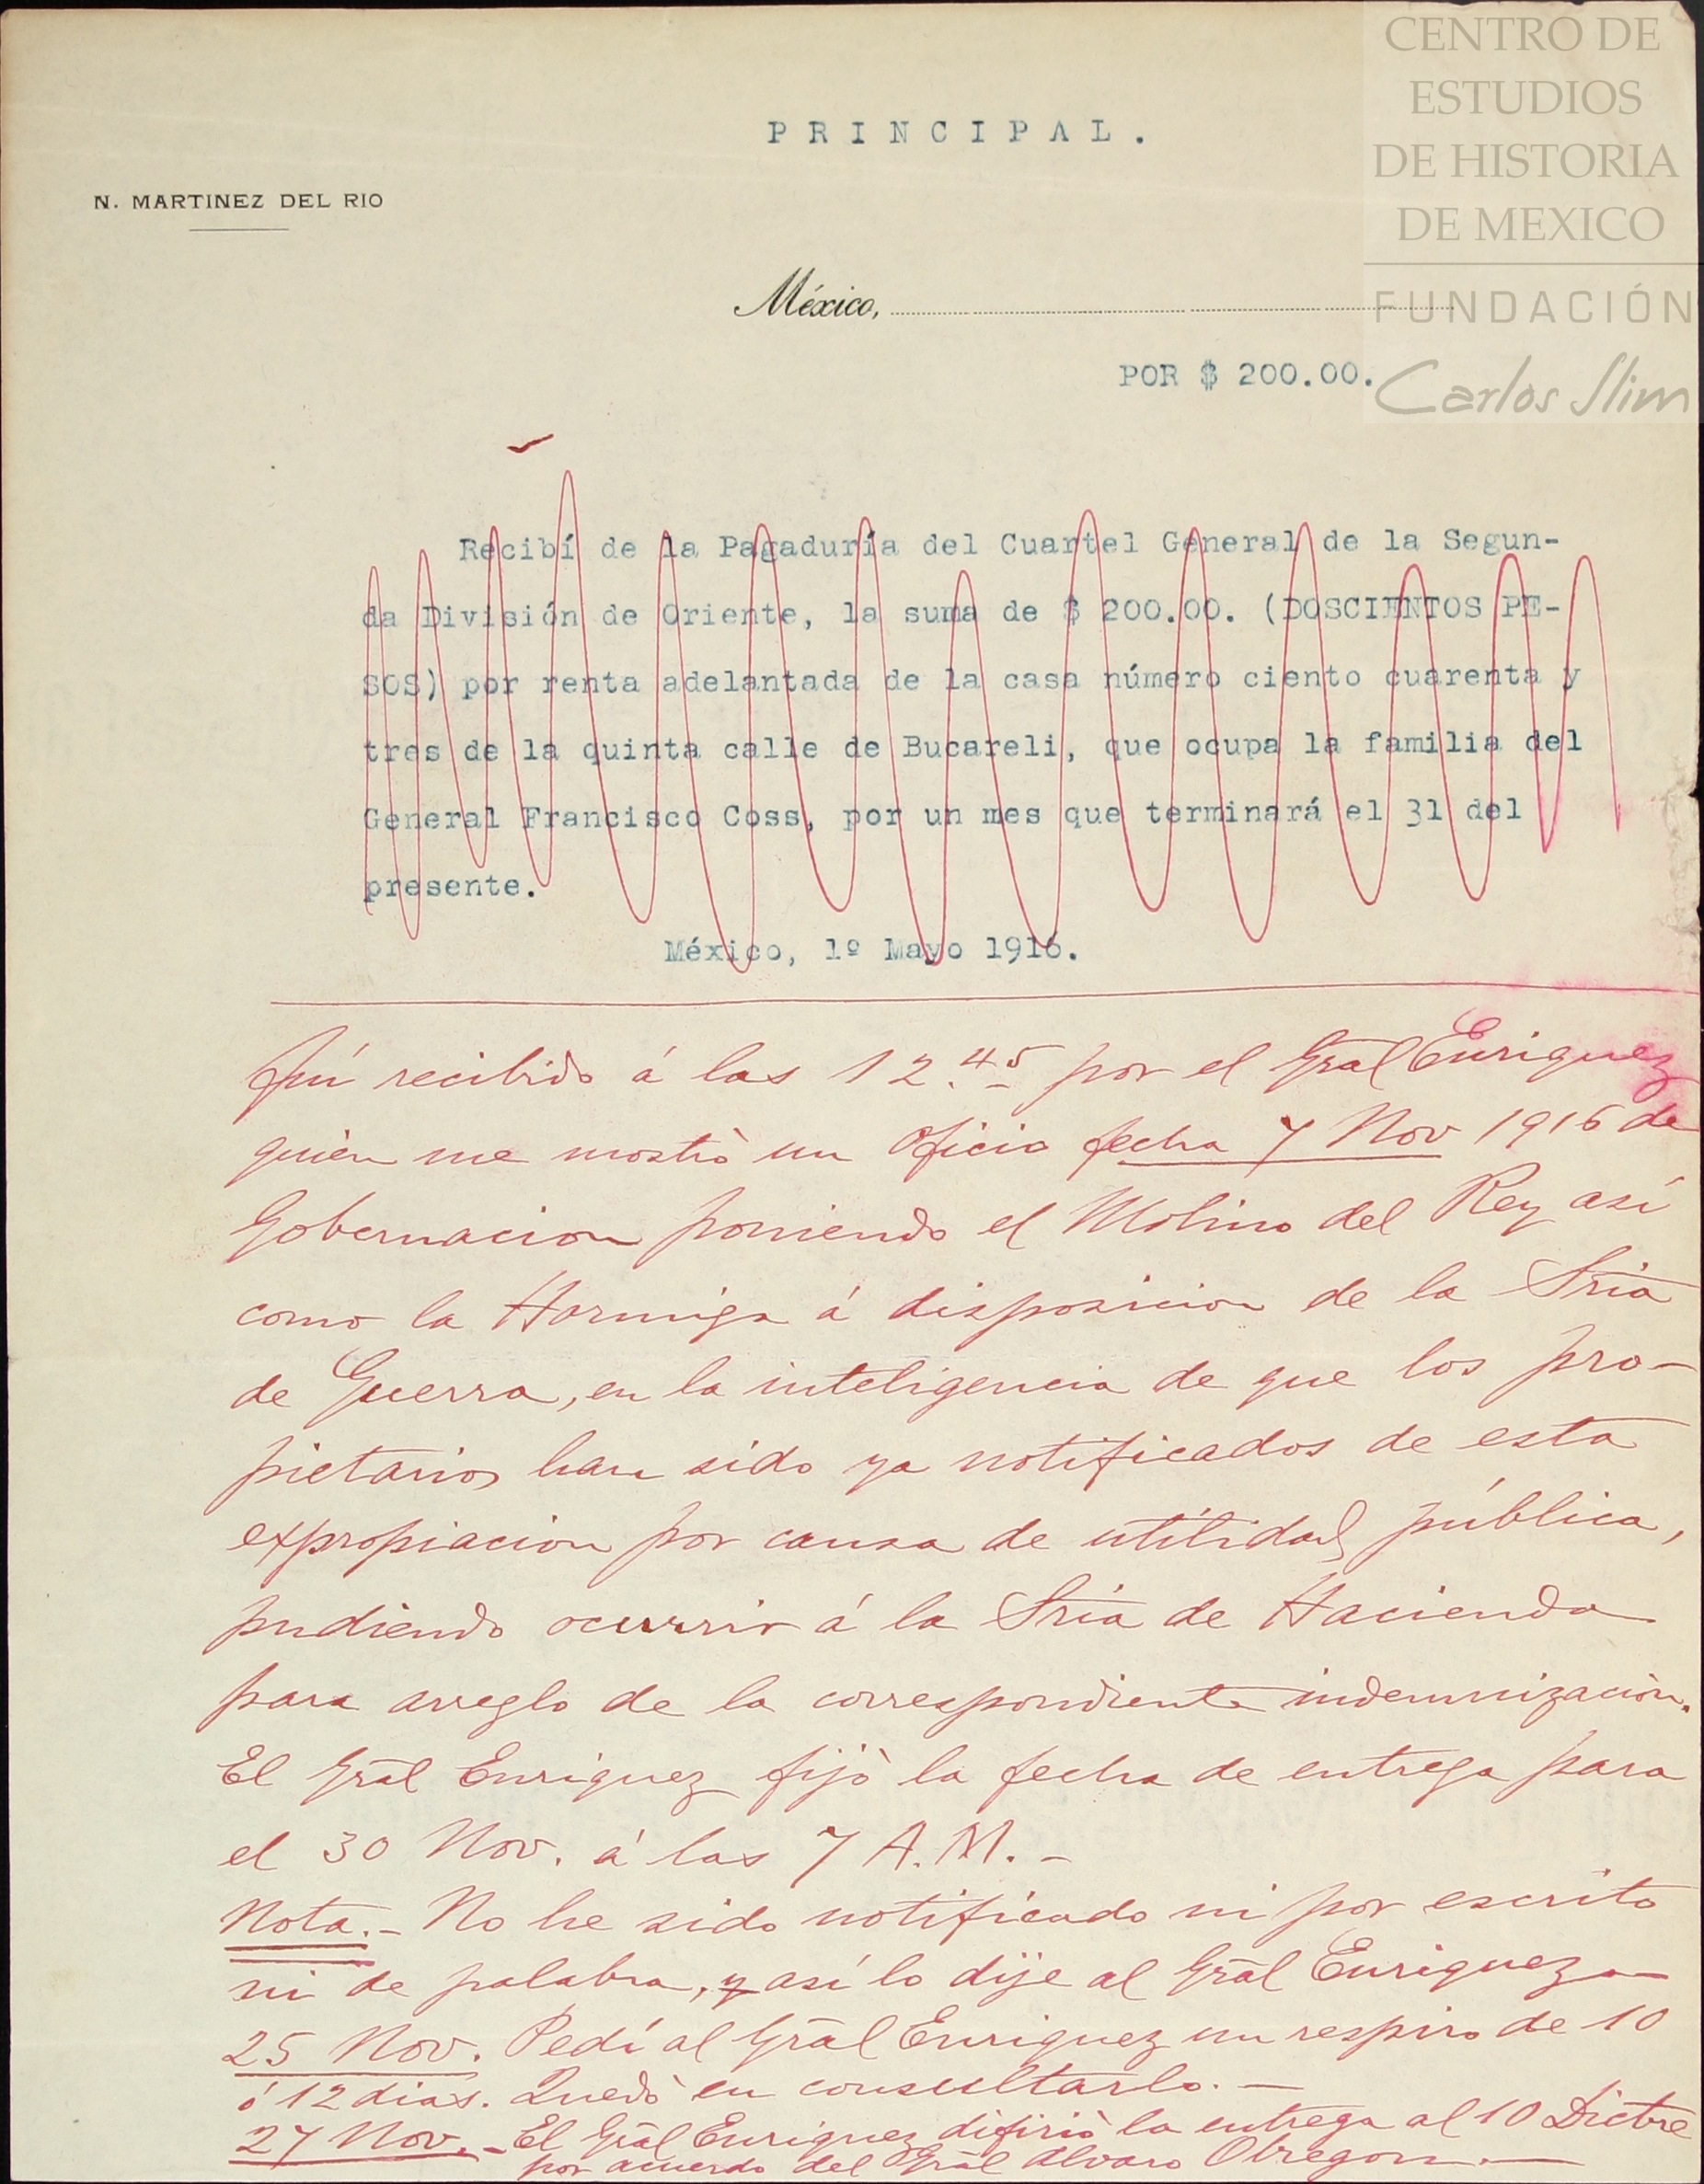 CENTRO DE
ESTUDIOS
DE HISTORIA
DE MEXICO
FUNDACIÓN
Carlos Slim
PRINCIPAL.
N. MARTINEZ DEL RIO
México,
POR $ 200.00.
Recibí de la Pagaduría del Cuartel General de la Segun-
da División de Oriente, la suma de $ 200.00. (DOSCIENTOS PE-
SOS) por renta adelantada de la casa número ciento cuarenta y
tres de la quinta calle de Bucareli, que ocupa la familia del
General Francisco Coss, por un mes que terminará el 31 del
presente.
México, 1º Mayo 1916.
Fuí recibido á las 12.45 por el Grãl Enriquez
quién me mostró un Oficio fecha 7 Nov 1916 de
Gobernacion poniendo el Molino del Rey así
como la Hormiga á disposicion de la Sría
de Guerra, en la inteligencia de que los pro-
pietarios han sido ya notificados de esta
expropiacion por causa de utilidad pública,
pudiendo ocurrir á la Sría de Hacienda
para arreglo de la correspondiente indemnización.
El Grãl Enriquez fijó la fecha de entrega para
el 30 Nov. á las 7 A.M. -
Nota.- No he sido notificado ni por escrito
ni de palabra, y así lo dije al Grãl Enriquez -
25 Nov. Pedí al Grãl Enriquez un respiro de 10
ó 12 dias. Quedó en consultarlo. -
27 Nov. - El Grãl Enriquez difirió la entrega al 10 Dictre
por acuerdo del Grãl Alvaro Obregon. -